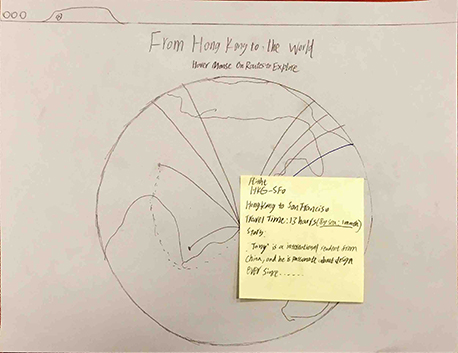 From Hong Kong to the World
Hover Mouse On Routes to Explore
Flight
HKG-SFO
Hong Kong to San Francisco
Travel Time: 13 hours
Story:
is a international student from
China, and he is passionate about design
ever since......